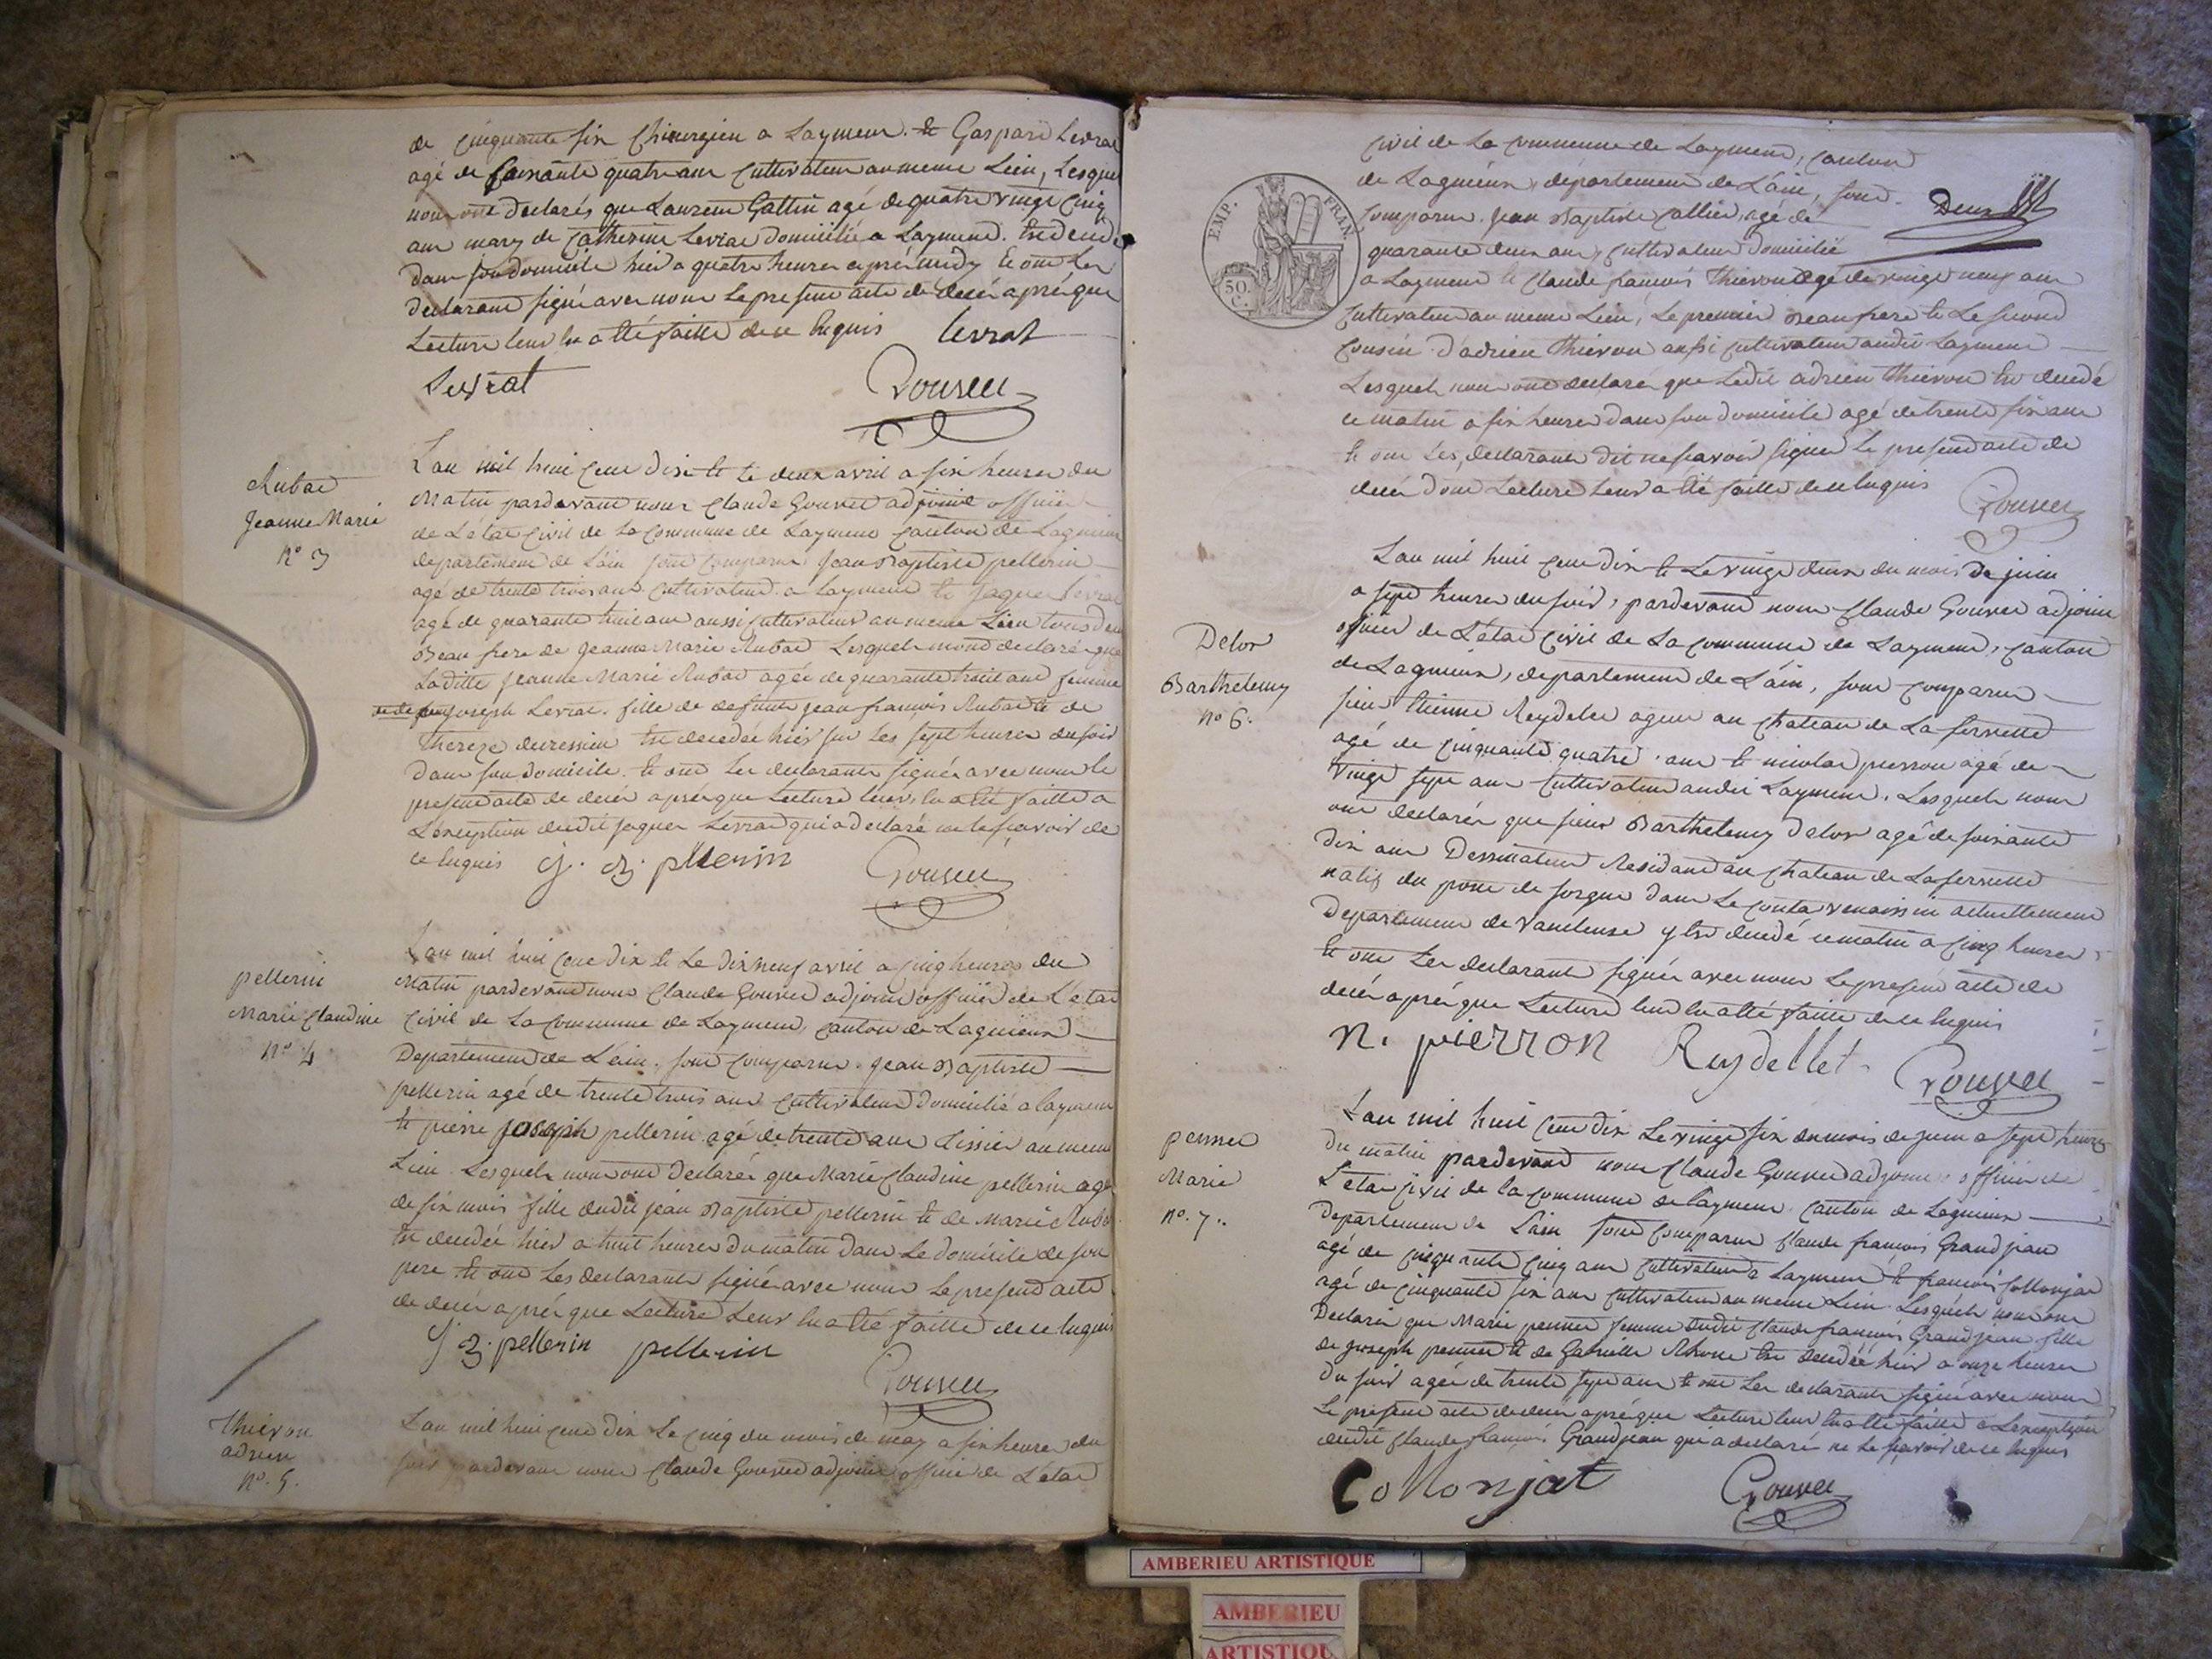 de cinquante six chirurgien a Laymeu. et Gaspard Levrat
agé de soixante quatre ans cultivateur au meme Lieu, Lesquels
nous ont declarés que Laurent Gattin agé de quatre vingt cinq
ans mary de Catherine Levrat domicilié a Laymeu. est decedé
dans son domicile hier a quatre heures aprés midy et ont Les
declarants signé avec nous Le present acte de decés aprés que
Lecture leur en a été faitte de ce Enquis levrat
Levrat Gouvee
Rubat
Jeanne Marie
n° 3
L'an mil huit cent dix et le deux avril a six heures du
Matin pardevant nous Claude Gouvet adjoint officier
de L'état Civil de La Commune de Laymeu canton de Lagnieu
departement de L'ain sont comparus Jean Baptiste pellerin
agé de trente trois ans cultivateur a Laymeu et Jaques Levrat
agé de quarante huit ans aussi cultivateur au meme Lieu tous deux
Beau frere de Jeanne Marie Rubat Lesquels m'ond declaré que
Laditte Jeanne Marie Rubat agée de quarante huit ans femme
joseph Levrat. fille de defunts jean francois Rubat et de
Thereze est decedée hier sur Les sept heures du soir
dans son domicile. et ont Les declarants signés avec nous le
present acte de decés aprés que Lecture leurs en a été faitte a
L'exception dudit Jaques Levrat qui a declaré ne le scavoir de
ce Enquis J. B. pllerin Gouvee
pellerin
Marie Claudine
n° 4
L'an mil huit cent dix et Le dix neuf avril a cinq heures du
Matin pardevant nous Claude Gouvet adjoint officier de L'état
Civil de La Commune de Laymeu, canton de Lagnieu
Departement de L'ain. sont comparus. Jean Baptiste
pellerin agé de trente trois ans cultivateur domicilié a laymeu
et pierre joseph pellerin agé de trente ans Tissier au meme
Lieu. Lesquels nous ont declarés que Marie Claudine pellerin agé
de six mois fille dudit jean Baptiste pellerin et de Marie Rubat
est decedée hier a huit heures du matin dans Le domicile de son
pere et ont Les declarants signé avec nous Le present acte
de decés aprés que Lecture Leur en a été faitte de ce Enquis
J B. pellerin pellerin
Gouvee
Thievon
adrien
n°. 5.
L'an mil huit cent dix Le cinq du mois de may a six heures du
soir pardevant nous Claude Gouvet adjoint officié de L'état
civil de La commune de Laymeu, canton
de Lagnieu, département de L'ain, sont
Deux
comparus. Jean Baptiste Callier, agé de
quarante deux ans, cultivateur domicilié
a Laymeu et Claude francois Thievon agé de vingt neuf ans
cultivateur au meme Lieu, Le premier Beau frere et Le second
cousin d'adrien Thievon aussi cultivateur audit Laymeu
Lesquels nous ont declaré que Ledit adrien Thievon est decedé
ce matin a six heures dans son domicile agé de trente six ans
et ont Les declarants dit ne scavoir signer le present acte de
decés dont Lecture Leur a été faitte de ce Enquis
Gouvee
EMP. FRAN.
50. C.
Delor
Barthelemy
n° 6.
L'an mil huit cent dix et Le vingt deux du mois de juin
a sept heures du soir, pardevant nous Claude Gouvee adjoint
officier de L'état civil de La commune de Laymeu, canton
de Lagnieu, departement de L'ain, sont comparus
sieur etienne Reydelet agent au chateau de La servette
agé de cinquante quatre ans et nicolas pierron agé de
vingt sept ans cultivateur audit Laymeu. Lesquels nous
ont declarés que sieur Barthelemy Delor agé de soixante
dix ans Dessinateur Residant au chateau de La servette
natif du pont de sorgue dans Le contat venaissin actuellement
Departement de vaucluse y est decedé ce matin a cinq heures
et ont Les declarants signés avec nous Le present acte de
decés aprés que Lecture leur en a été faitte de ce Enquis
N. pierron Reydellet
Gouvee
Marie
n°. 7.
L'an mil huit cent dix Le vingt six du mois de juin a sept heures
du matin pardevant nous Claude Gouvet adjoint officier de
L'état civil de la commune de laymeu canton de Lagnieu
Departement de L'ain sont comparus Claude francois Grandjean
agé de cinquante cinq ans cultivateur a Laymeu et francois Collonjat
agé de cinquante six ans cultivateur au meme Lieu. Lesquels nous ont
Declarés que Marie femme dudit Claude francois Grandjean fille
de joseph et de Gabrielle est decedée hier a onze heures
du soir agée de trente sept ans et ont Les declarants signé avec nous
Le present acte de decés aprés que Lecture leur en a été faitte a L'exception
dudit Claude francois Grandjean qui a declaré ne Le scavoir de ce Enquis
Collonjat Gouvee
AMBERIEU ARTISTIQUE
AMBERIEU
ARTISTIQU